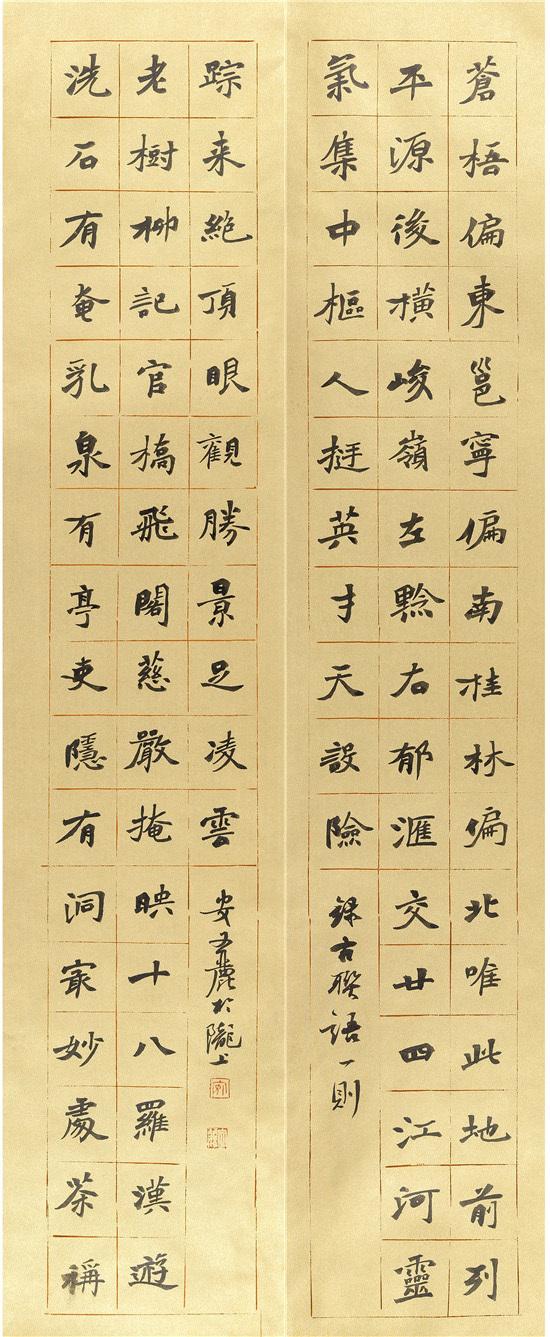 蒼梧偏東邕寧偏南桂林偏北唯此地前列
平源後橫峻嶺左黔右郁滙交廿四江河靈
氣集中樞人挺英才天設險
錄古聯語一則
洗石有奄乳泉有亭吏隱有洞㝡妙處茶稱
老樹柳記官橋飛閣慈嚴掩映十八羅漢遊
踪来絕頂眼觀勝景足凌雲
安麗於隴上